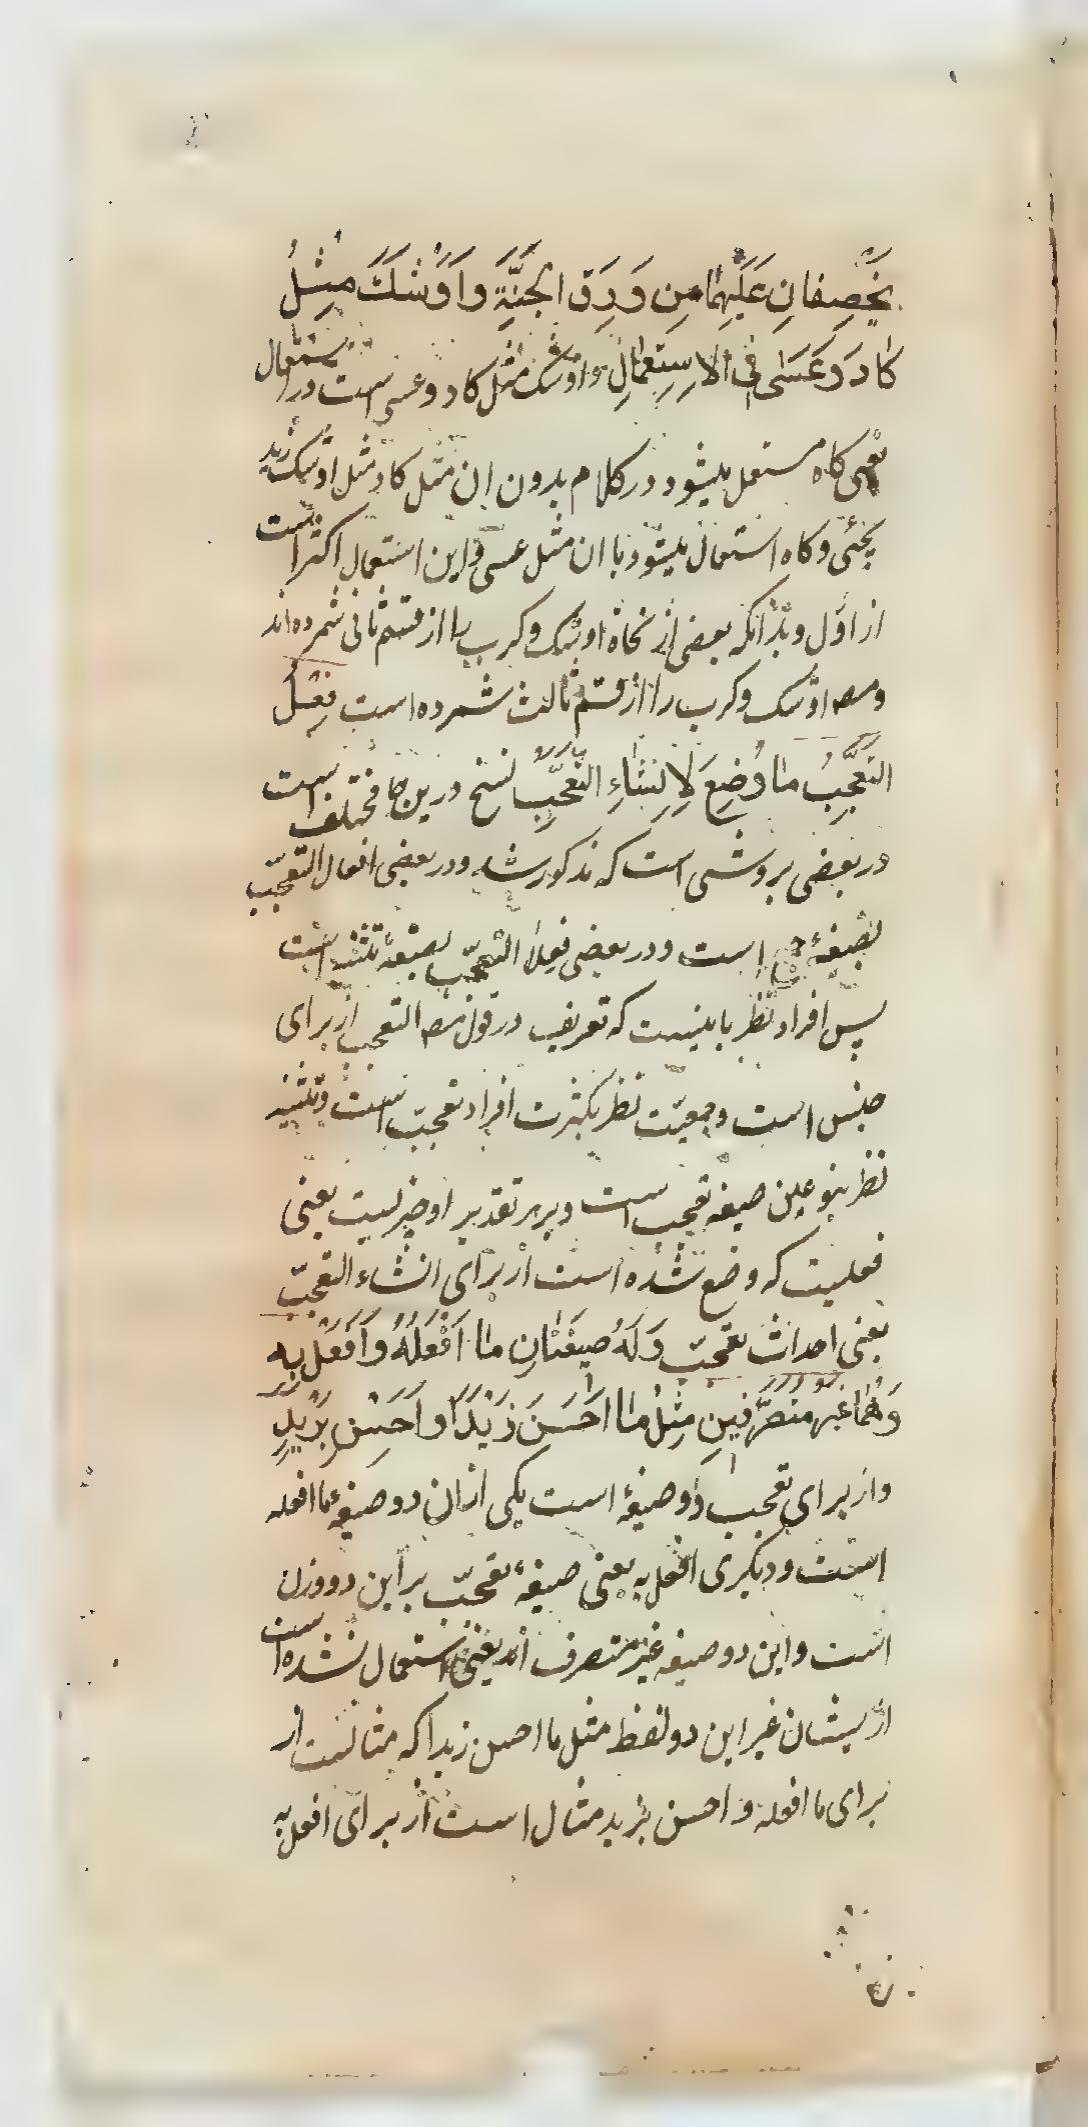 يَخْصِفانِ عَلَيْهِمٰا مِن وَرَقِ الجَنَّةِ وَاَوْشَكَ مِثْلُ
كادَ وَ عَسَىٰ فِي الاِسْتِعْمٰالِ و اوشك مثل كاد و عسى است در استعمال
يعنى كاه مستعمل ميشود در كلام بدون ان مثل كاد مثل اوشك زيد
يجئى و كاه استعمال ميشود با ان مثل عسى و اين استعمال اكثر است
از اوّل و بدانكه بعضى از نحاة اوشك و كرب را از قسم ثانى شمرده اند
و مصه اوشك و كرب را از قسم ثالث شمرده است فِعْلُ
التَعَجُّبِ مٰا وُضِعَ لِاِنْشٰاءِ التَّعَجُّبِ نسخ درين جا مختلف است
در بعضى بروشى است كه مذكور شد و در بعضى افعال التعجّب
بصيغهٔ جمع است و در بعضى فعلا التعجّب بصيغهٔ تثنيه است
پس افراد نظر باينست كه تعريف در قول مصه التعجب از براى
جنس است و جمعيّت نظر بكثرت افراد تعجّب است و تثنيه
نظر بنوعين صيغه تعجب است و بر هر تقدير او چيزيست يعنى
فعليت كه وضع شده است از براى انشاء التعجّب
يعنى احداث تعجّب وَ لَهُ صيغَتٰانِ مٰا اَفْعَلَهُ وَ اَفْعِلْ بِهِ
وَ هُمٰا غَيْرُ مُتَصَرِّفَيْنِ مِثْلُ مٰا اَحْسَنَ زَيْدًا وَ اَحْسِنْ بِزَيْدٍ
و از براى تعجب دو صيغهٔ است يكى از ان دو صيغهٔ ما افعله
است و ديكرى افعل به يعنى صيغهٔ تعجّب بر اين دو وزن
است و اين دو صيغه غير متصرف اند يعنى استعمال نشده است
از يشان غير اين دو لفظ مثل ما احسن زيدا كه مثالست از
براى ما افعله و احسن بزيد مثال است از براى افعل به